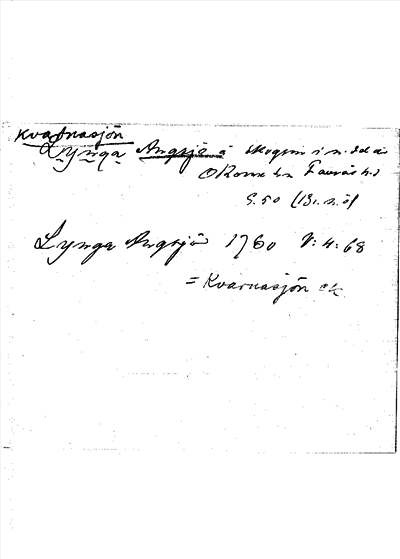 Kvarnasjön
Lynga Angsjö å skogen i n. del av
Ö Rome sn Faurås hd
S. 50 (13 n. ö)
Lynga Angsjö 1760 V: 4: 68
= Kvarnasjön ek